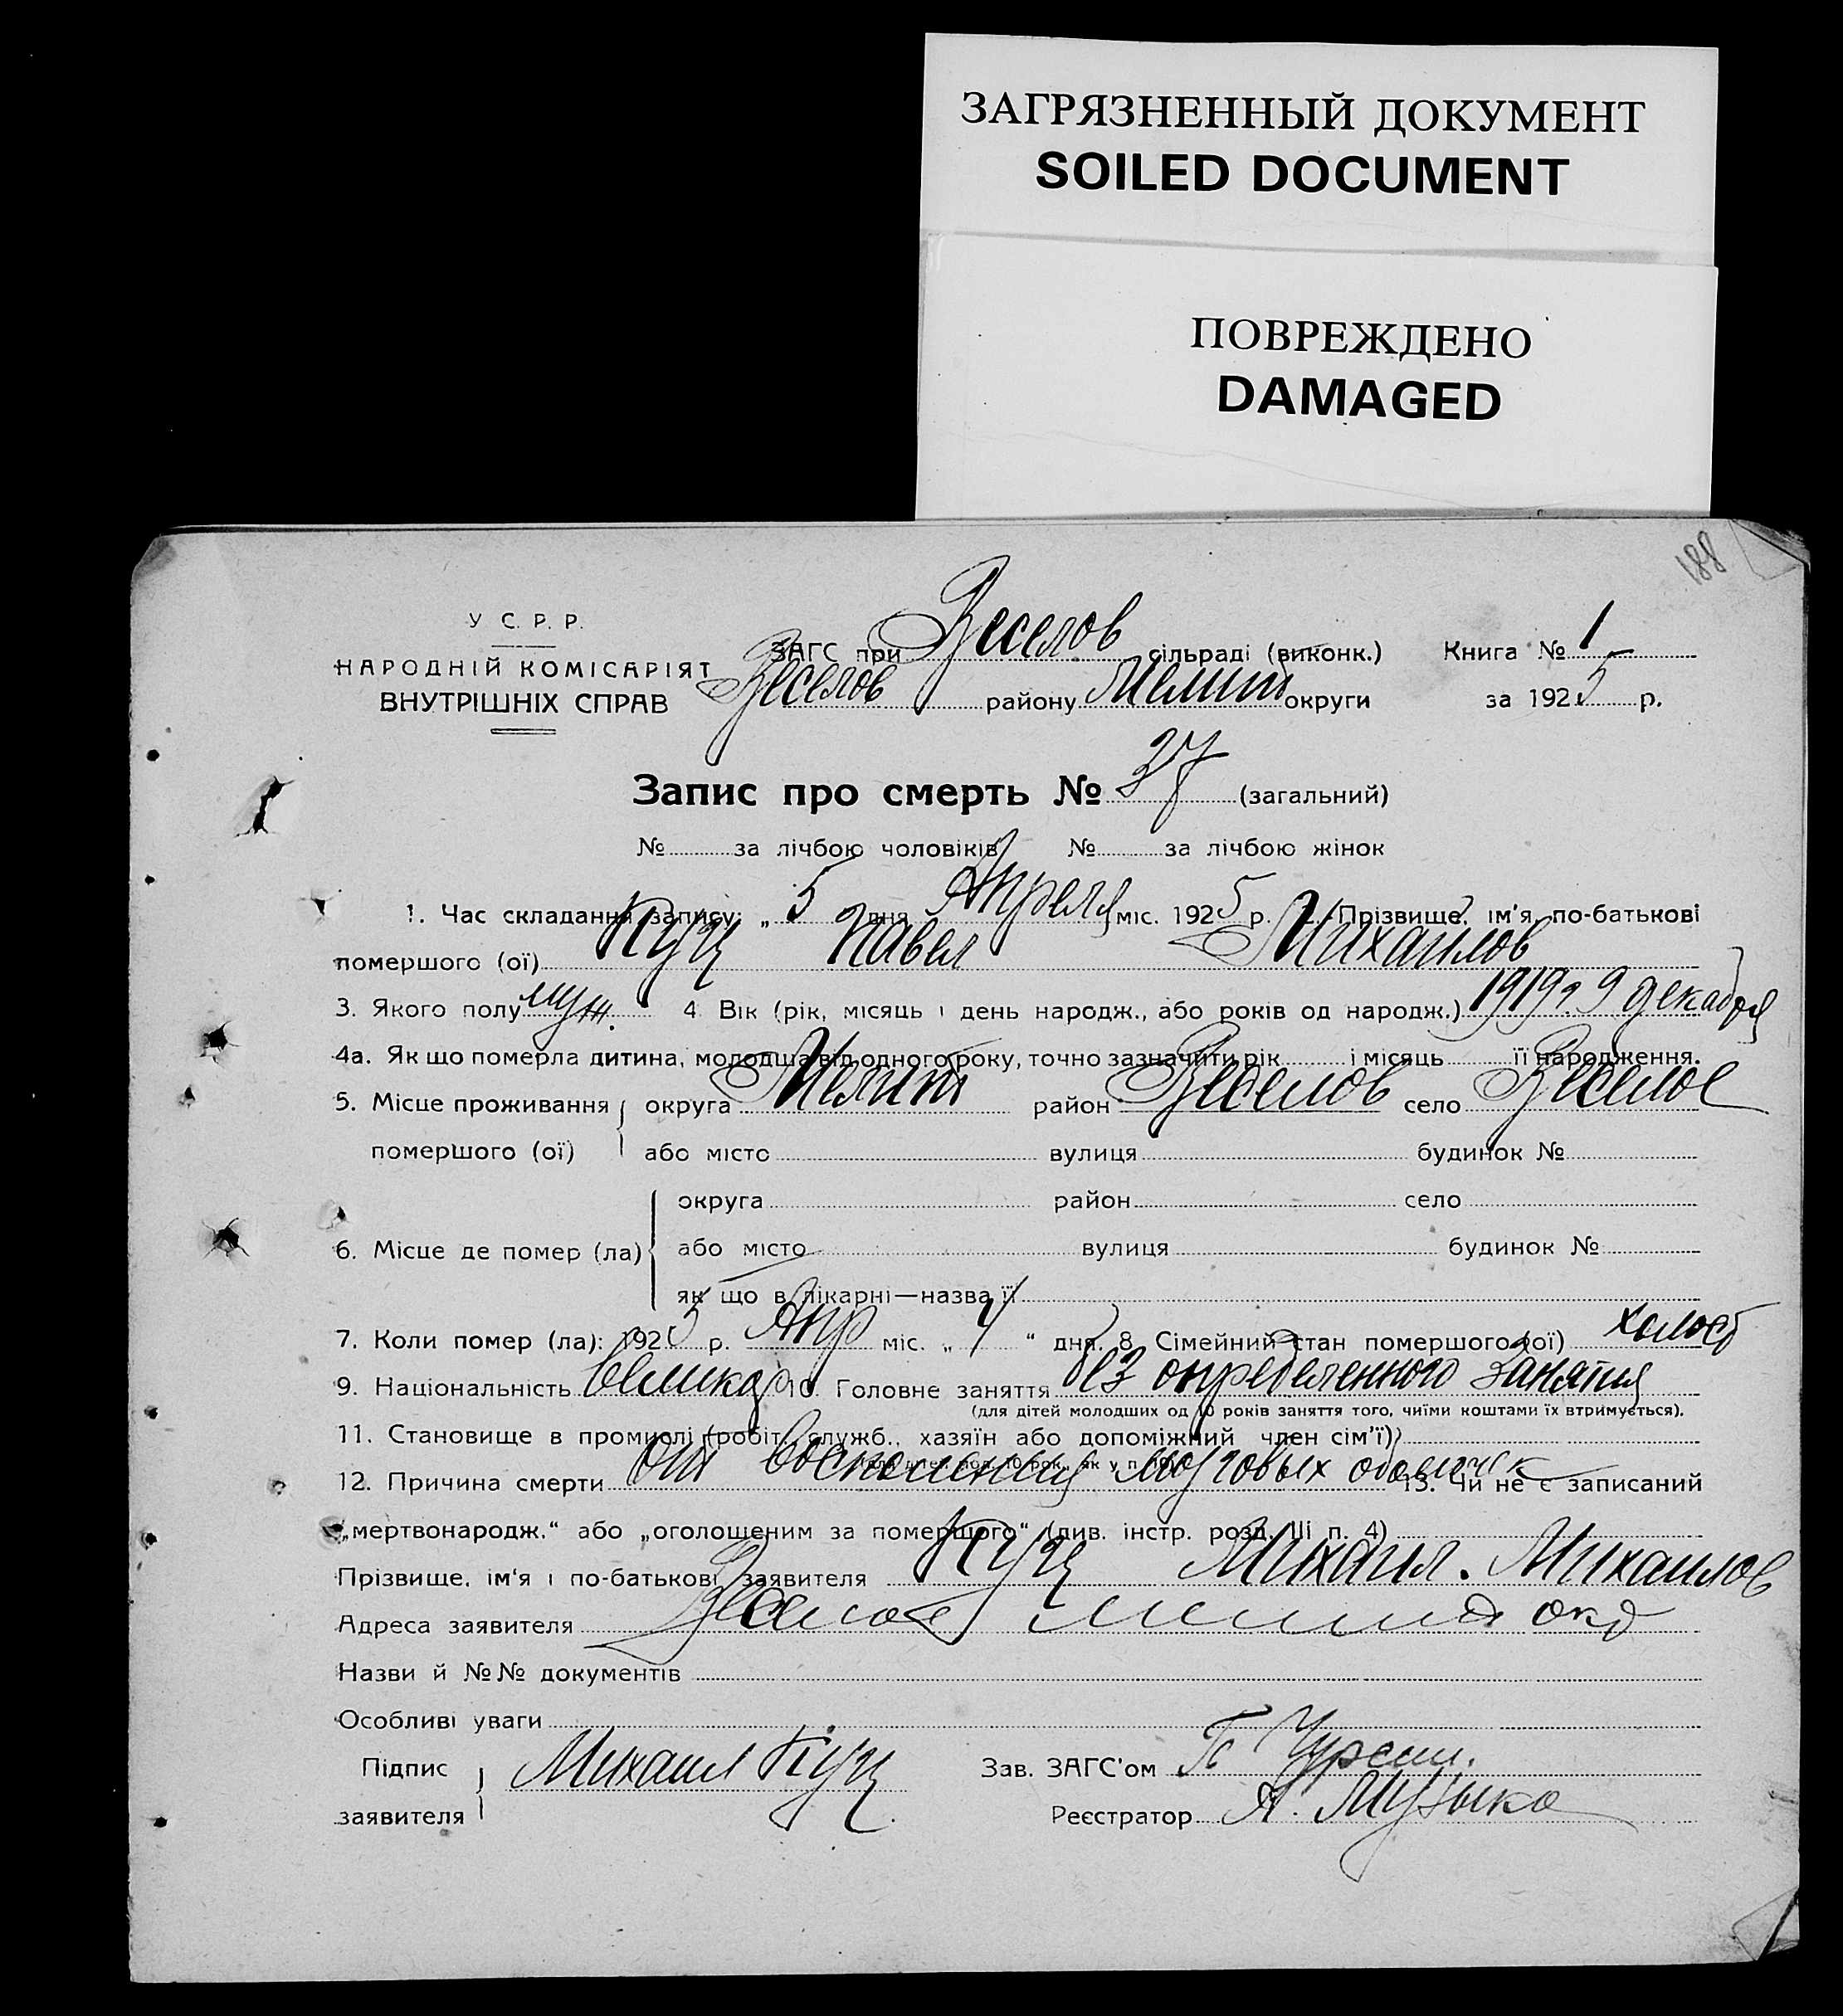 ЗАГРЯЗНЕННЫЙ ДОКУМЕНТ
SOILED DOCUMENT
ПОВРЕЖДЕНО
DAMAGED
188
У С. Р. Р.
НАРОДНІЙ КОМІСАРІЯТ
ВНУТРІШНІХ СПРАВ
ЗАГС при Веселов сільраді (виконк.) Книга № 1
Веселов району Мелит округи за 1925 р.
Запис про смерть № 37 (загальний)
№ за лічбою чоловіків № за лічбою жінок
1. Час складання запису: „ 5 дня Апреля міс. 1925 р. 2. Прізвище, ім'я, по-батькові
помершого (ої) Куц Павел Михаилов
3. Якого полу муж. 4 Вік (рік, місяць і день народж., або років од народж.) 1919 г. 9 декабря
4а. Як що померла дитина, молодша від одного року, точно зазначити рік і місяць її народження.
5. Місце проживання помершого (ої) округа Мелит район Веселов село Веселое
або місто вулиця будинок №
округа район село
6. Місце де помер (ла) або місто вулиця будинок №
як що в лікарні—назва її
7. Коли помер (ла): 1925 р. Апр міс. „ 4 “ дня. 8 Сімейний стан помершого (ої) холост
9. Національність великор 10. Головне заняття без определенного занятия
(для дітей молодших од 10 років заняття того, чиїми коштами їх втримується).
11. Становище в промислі (робіт., служб., хазяїн або допоміжний член сім'ї)
12. Причина смерти от воспаления мозговых оболочек 13. Чи не є записаний
„мертвонародж.“ або „оголошеним за помершого“ (див. інстр. розд. III п. 4)
Прізвище, ім'я і по-батькові заявителя Куц Михаил. Михаилов
Адреса заявителя Веселое окр
Назви й №№ документів
Особливі уваги
Підпис заявителя Михаил Куц Зав. ЗАГС'ом
Реєстратор А. Музыка